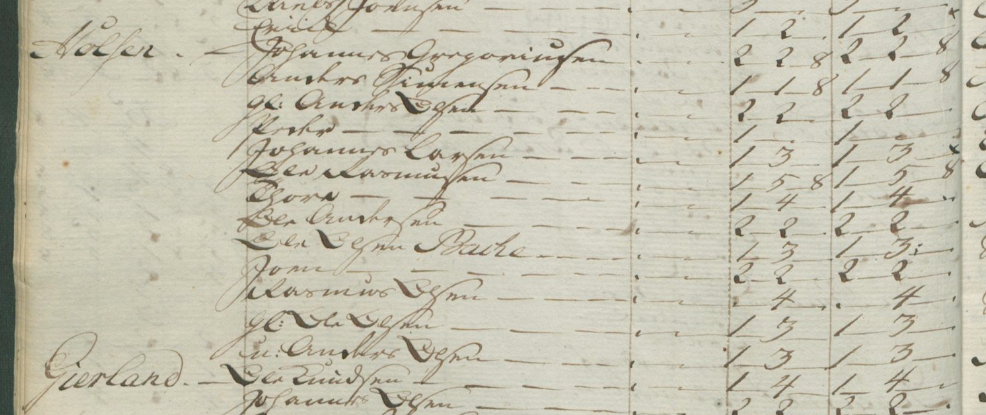 Joensen
Erich — 1 2 1 2
Holsen. — Johannes Gregoriusen — 2 2 8 2 2 8
Anders Simensen — 1 1 8 1 1 8
gl: Anders Olsen — 2 2 2 2
Peder — 1 1
Johannes Larsen — 1 3 1 3
Ole Rasmusen — 1 5 8 1 5 8
Thore — 1 4 1 4
Ole Andersen — 2 2 2 2
Ole Olsen Bache — 1 3 1 3
Joen — 2 2 2 2
Rasmus Olsen — . 4 . 4
gl: Ole Olsen — 1 3 1 3
u: Anders Olsen — 1 3 1 3
Gierland. — Ole Knudsen — 1 4 1 4
Johannes Olsen — 2 2 2 2